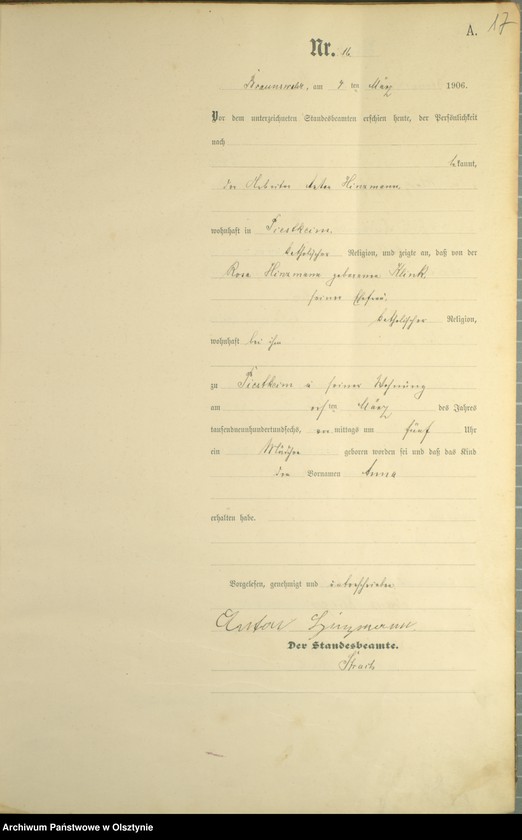 A. 17
Nr. 16
Braunswalde, am 9 ten März 1906.
Vor dem unterzeichneten Standesbeamten erschien heute, der Persönlichkeit
nach
bekannt,
der Arbeiter Anton Hinzmann
wohnhaft in
katholischer Religion, und zeigte an, daß von der
Rosa Hinzmann geborenen Klink
seiner Ehefrau
katholischer Religion,
wohnhaft bei ihm
zu in seiner Wohnung
am ten März des Jahres
tausendneunhundertundsechs, vormittags um fünf Uhr
ein Mädchen geboren worden sei und daß das Kind
den Vornamen Anna
erhalten habe.
Vorgelesen, genehmigt und unterschrieben
Anton Hinzmann
Der Standesbeamte.
Archiwum Państwowe w Olsztynie